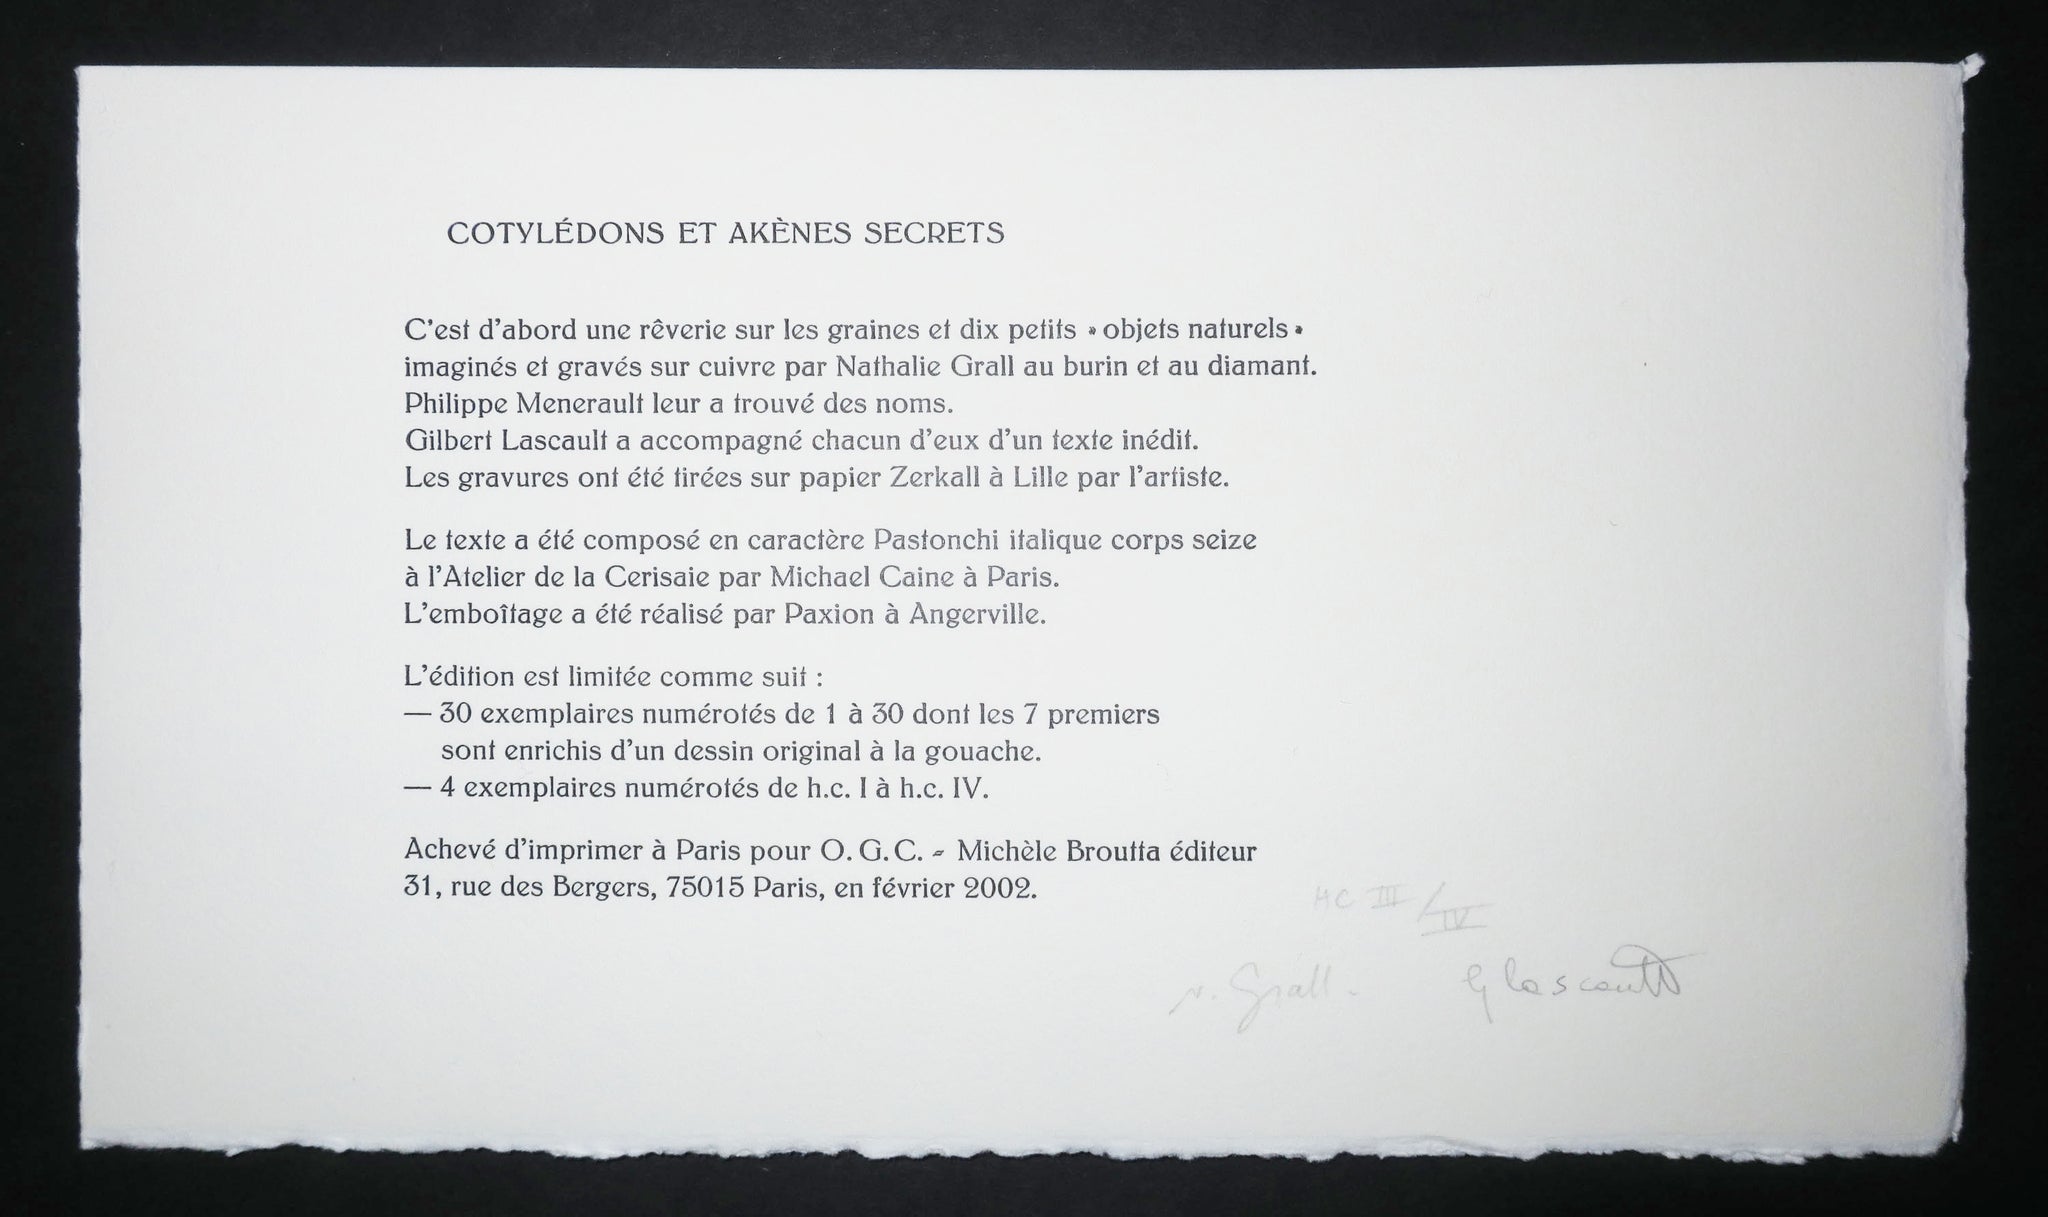 COTYLÉDONS ET AKÈNES SECRETS
C'est d'abord une rêverie sur les graines et dix petits « objets naturels »
imaginés et gravés sur cuivre par Nathalie Grall au burin et au diamant.
Philippe Menerault leur a trouvé des noms.
Gilbert Lascault a accompagné chacun d'eux d'un texte inédit.
Les gravures ont été tirées sur papier Zerkall à Lille par l'artiste.
Le texte a été composé en caractère Pastonchi italique corps seize
à l'Atelier de la Cerisaie par Michael Caine à Paris.
L'emboîtage a été réalisé par Paxion à Angerville.
L'édition est limitée comme suit :
— 30 exemplaires numérotés de 1 à 30 dont les 7 premiers
sont enrichis d'un dessin original à la gouache.
— 4 exemplaires numérotés de h.c. I à h.c. IV.
Achevé d'imprimer à Paris pour O. G. C. - Michèle Broutta éditeur
31, rue des Bergers, 75015 Paris, en février 2002.
HC III / IV
N. Grall.
G Lascault